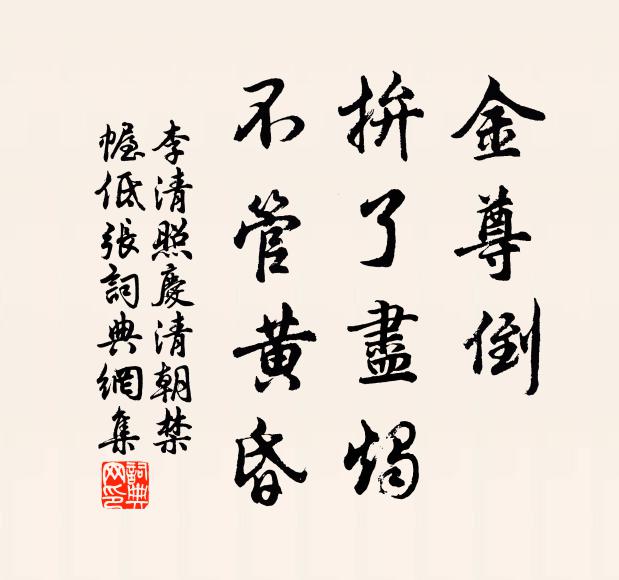 金尊倒
拚了盡燭
不管黄昏
李清照慶清朝禁
幄低張詞典網集
詞典网印